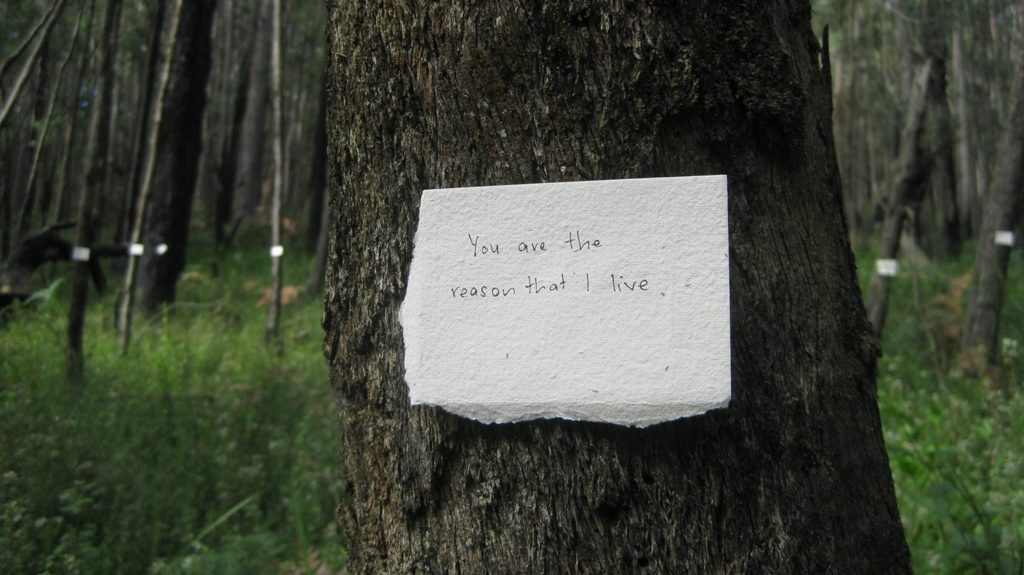 You are the
reason that I live.